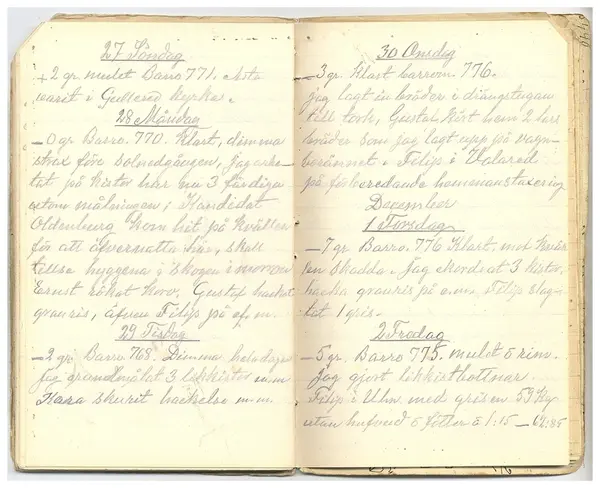 27 Söndag
+2 gr. mulet Baro 771. ej
varit i Gullered kyrka.
28 Måndag
-0 gr. Barro. 770. Klart, dimma
strax före solnedgången, Jag arbe-
tat på kistor har nu 3 färdiga
utom målningen, Kandidat
Oldenburg kom hit på kvällen
för att öfvernatta här, skall
tillse hyggena i skogen i morron
Ernst rökat korv, Gustaf hackat
granris, äfven Filip på ef.m.
29 Tisdag
-2 gr. Barro. 768. Dimma hela dagen
Jag grundmålat 3 likkistor m.m
skurit hackelse m.m.
30 Onsdag
-3 gr. Klart barrom. 776.
jag lagt in bräder i drängstugan
till tork, Gustaf kört hem 2 lass
bräder som jag lagt upp på vagn-
Filip i
på förberedande hemmanstaxering
December
1 Torsdag
-7 gr. Barro. 776 Klart, mot kväl-
len skodda. Jag 3 kistor.
hacka granris på e.m. Filip slag-
tat 1 gris.
2 Fredag
-5 gr. Barro 775. mulet o rim.
Jag gjort likkistbottnar.
Filip i Ulm. med grisen 53 Kg
utan hufvud o fötter à 1:15 — 62:85